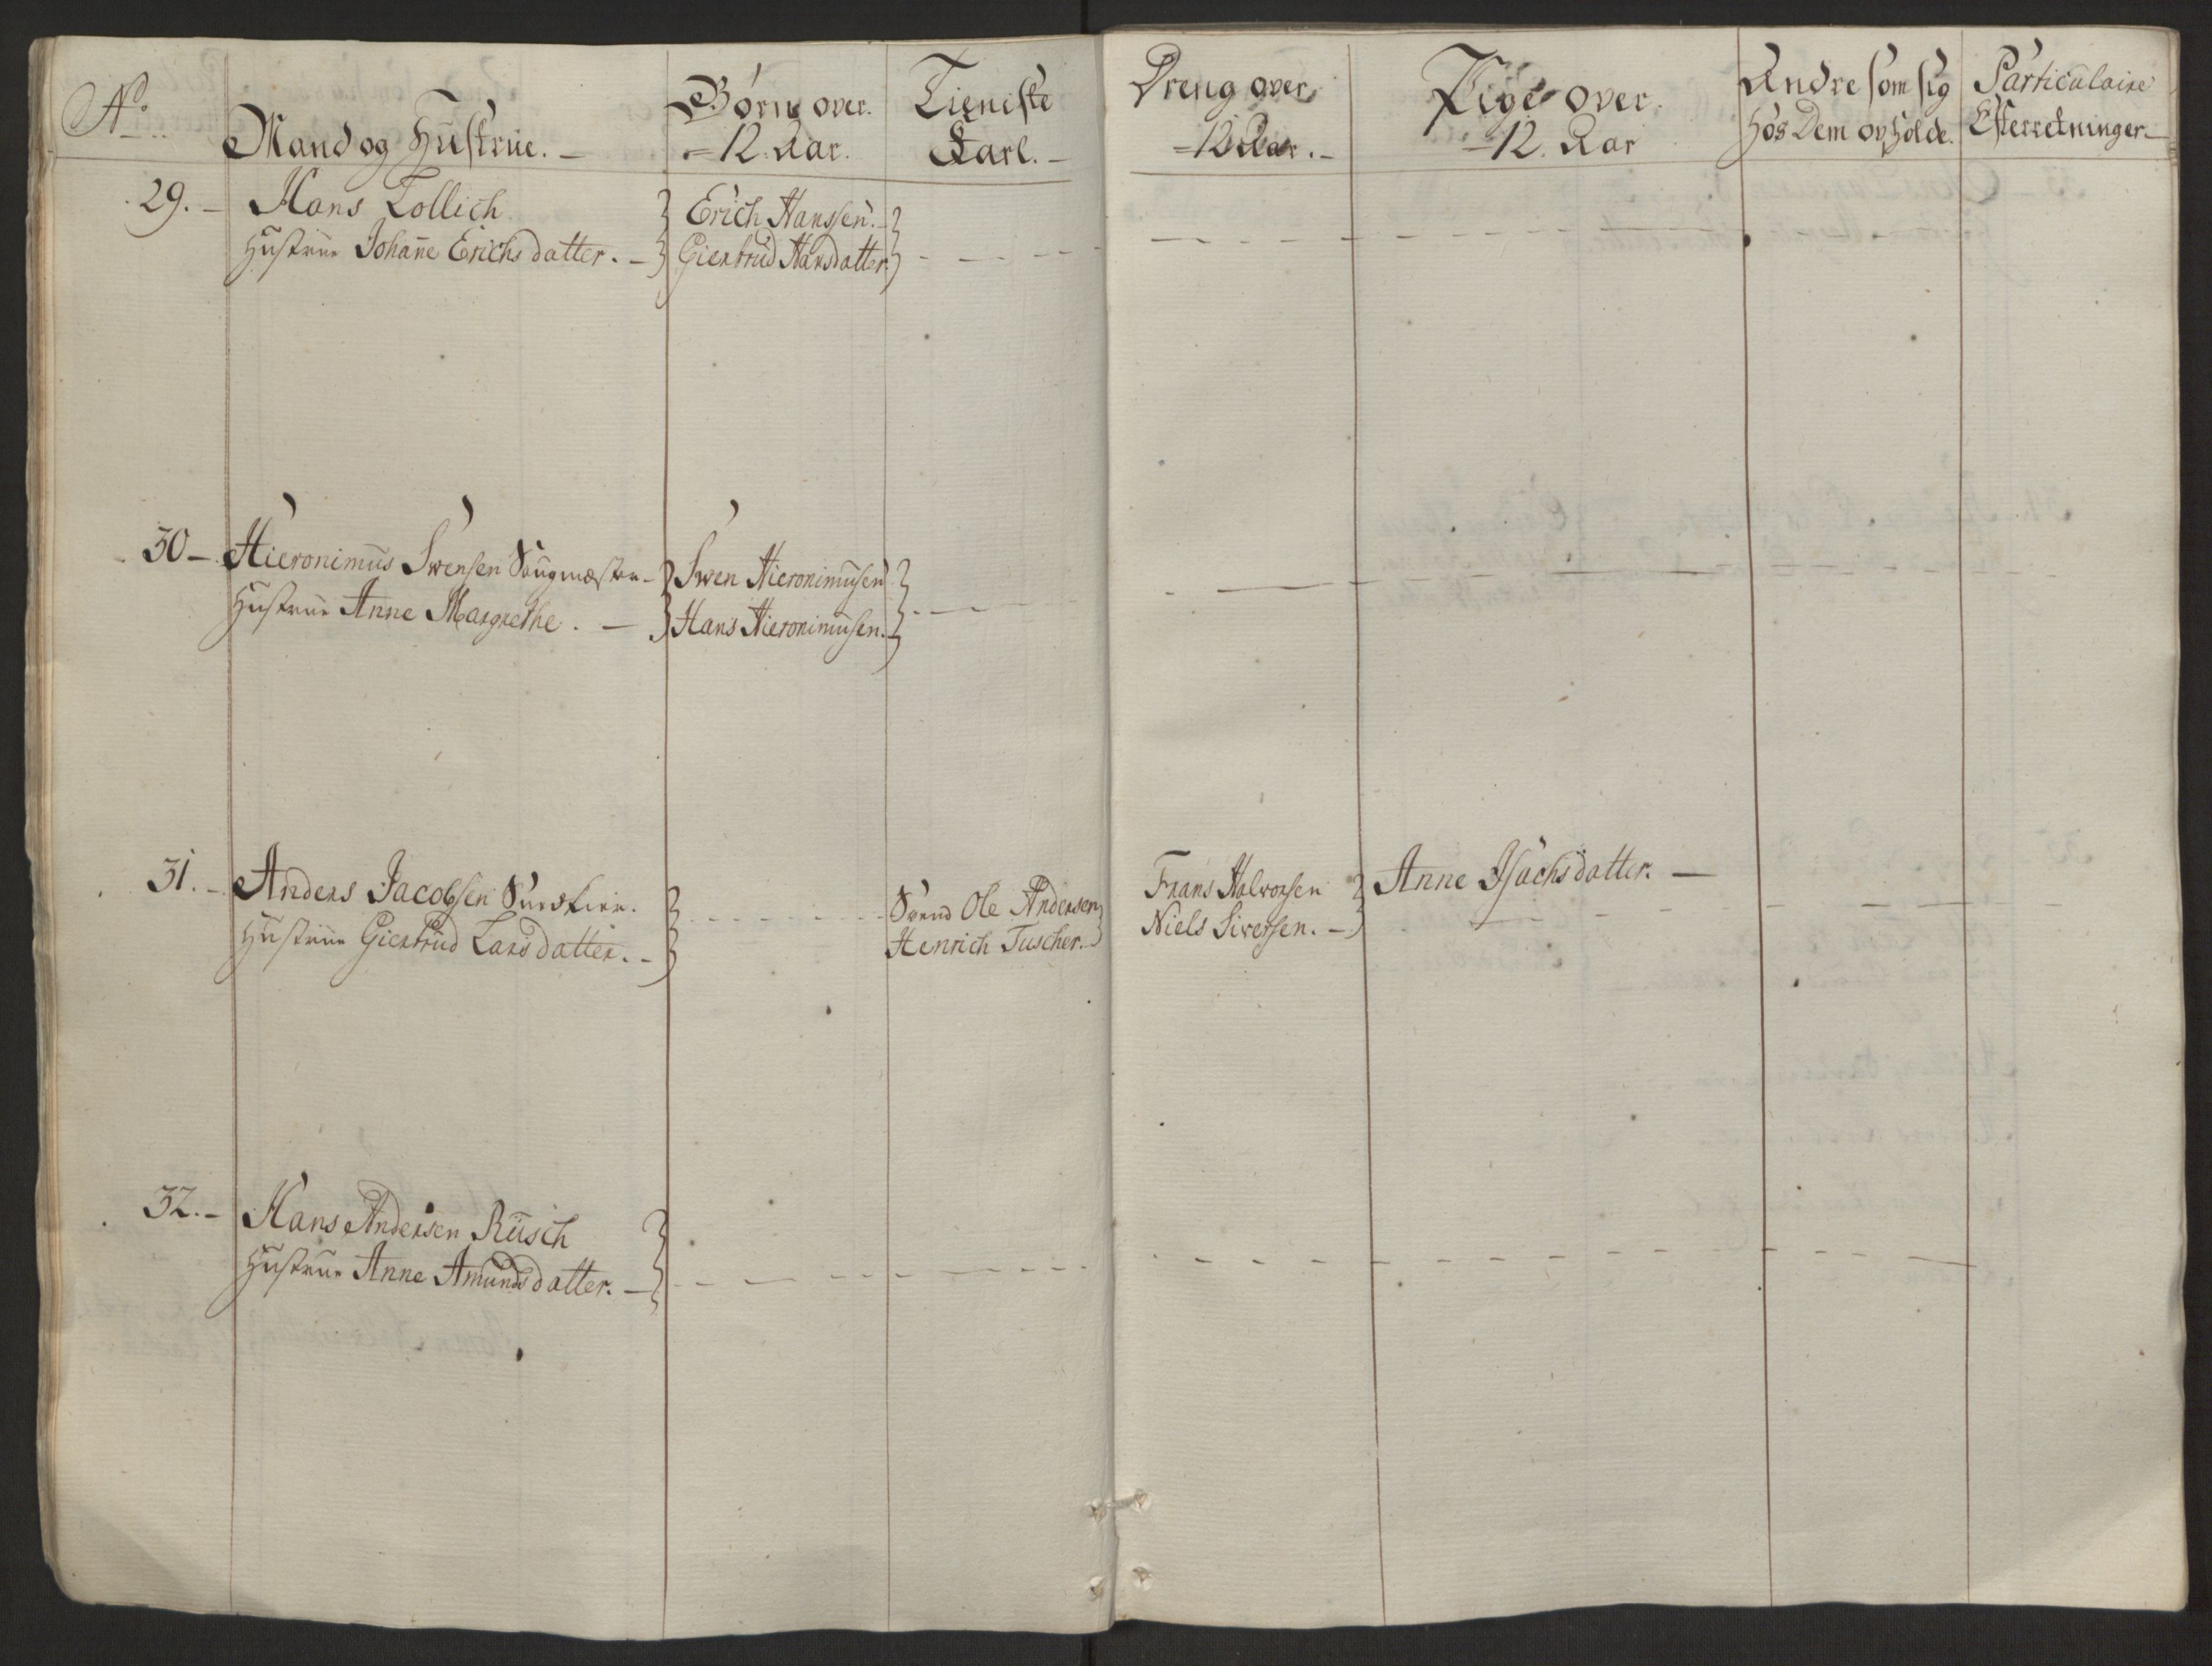 No.
Mand og Hustrüe.
Börn over
12. Aar.
Tieniste
Karl.
Dreng over
12 Aar.
Pige over
12. Aar
Andre som sig
hos Dem opholde.
Particulaire
Efterretninger
29. Hans Tollich
Hustrue Johañe Erichsdatter.
Erich Hanssen.
Giertrud Hansdatter
30 Hieronimus Swensen
Hustrue Anne Margrethe.
Swen Hieronimusen
Hans Hieronimusen.
31. Anders Jacobsen
Hustrue Giertrud Larsdatter.
Svend Ole Andersen
Henrich Tuscher.
Frans Halvorsen
Niels Siversen.
Anne Isachsdatter.
32. Hans Andersen Rüsch
Hustrue Anne Amundsdatter.